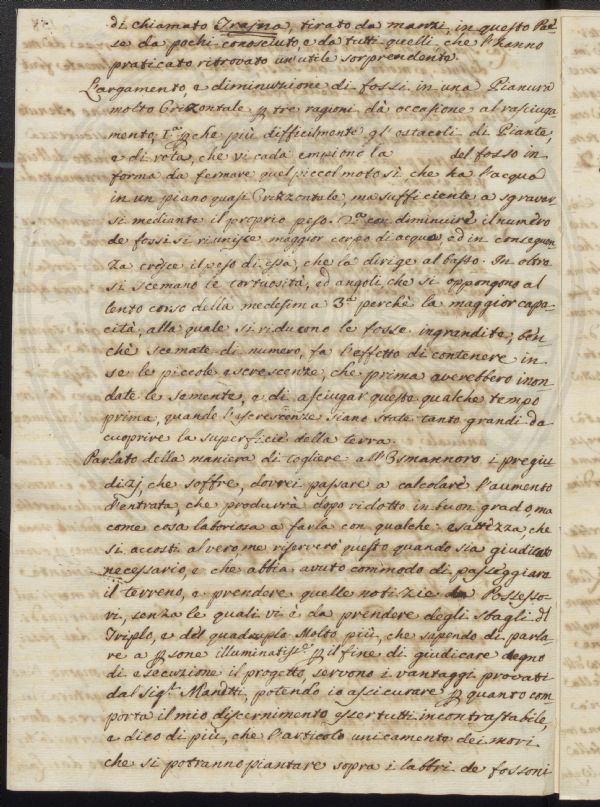 di chiamato Trasna, tirato da manzi, in questo Pae
se da pochi conosciuto, e da tutti quelli, che l'hanno
praticato ritrovato un'utile sorprendente.
L'argamento, e diminuzione di fossi in una Pianura
molto Orizontale ꝑ tre ragioni dà occasione al rasciuga
mento; 1.a ꝑche più difficilmente gl'ostacoli di Piante,
e di rota, che vi cada empiono la del fosso in
forma da fermare quel piccol moto si, che ha l'acqua
in un piano quasi Orizzontale, ma sufficiente a sgravar
si mediante il proprio peso. 2.a con diminuire il numero
de fossi si riunisce maggior corpo di acqua, ed in conseguen
za cresce il peso di essa, che la dirige al basso. In oltre
si scemano le tortuosità, ed angoli che si oppongono al
lento corso della medesima 3.a perchè la maggior capa-
cità, alla quale si riducono le fosse ingrandite, ben
chè scemate di numero, fa l'effetto di contenere in
se le piccole escrescenze, che prima averebbero inon
date le semente, e di asciugar queste qualche tempo
prima, quando l'escrescenze siano state tanto grandi da
cuoprire la superficie della terra.
Parlato della maniera di togliere all'Osmannoro i pregiu
dizj, che soffre, dovrei passare a calcolare l'aumento
d'entrata, che produrrà dopo ridotto in buon grado, ma
come cosa labriosa a farla con qualche esattezza, che
si accosti al vero, me riserverò questo quando sia giudicato
necessario, e che abbia avuto commodo di passeggiare
il terreno, e prendere quelle notizie da Possesso-
ri, senza le quali vi è da prendere degli sbagli del
Triplo, e del quadruplo. Molto più, che sapendo di parla-
re a ꝑsone illuminatiss.e ꝑ il fine di giudicare degno
di esecuzione il progetto, servono i vantaggi provati
dal Sig.r Manetti, potendo io assicurare ꝑ quanto com
porta il mio discernimento esser tutti incontrastabile,
e dico di più, che l'articolo unicamente dei mori
che si potranno piantare sopra i labbri de fossoni